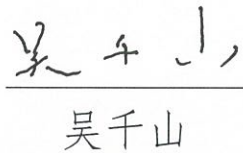 吴千山
吴千山